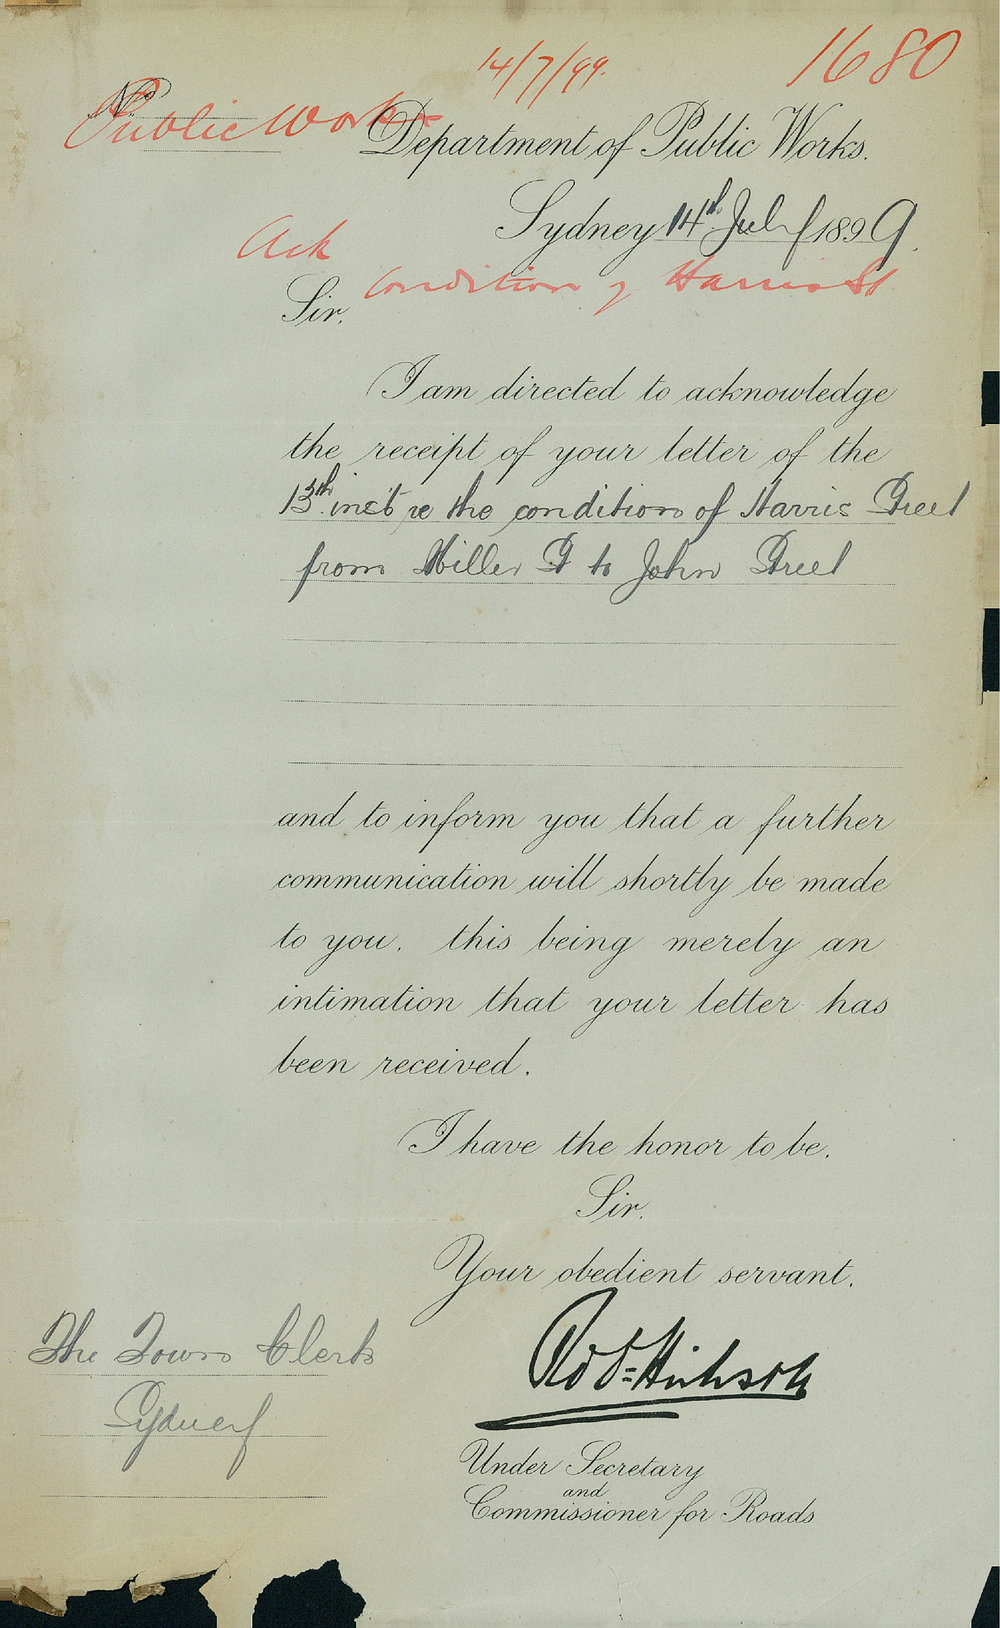 14/7/99.
1680
No
Public Works
Department of Public Works.
Sydney 14th July 1899.
Ack
Condition of Harris St
Sir,
I am directed to acknowledge
the receipt of your letter of the
13th inst re the condition of Harris Street
from Miller St to John Street
and to inform you that a further
communication will shortly be made
to you, this being merely an
intimation that your letter has
been received.
I have the honor to be,
Sir,
Your obedient servant,
The Town Clerk
Sydney
Under Secretary
and
Commissioner for Roads